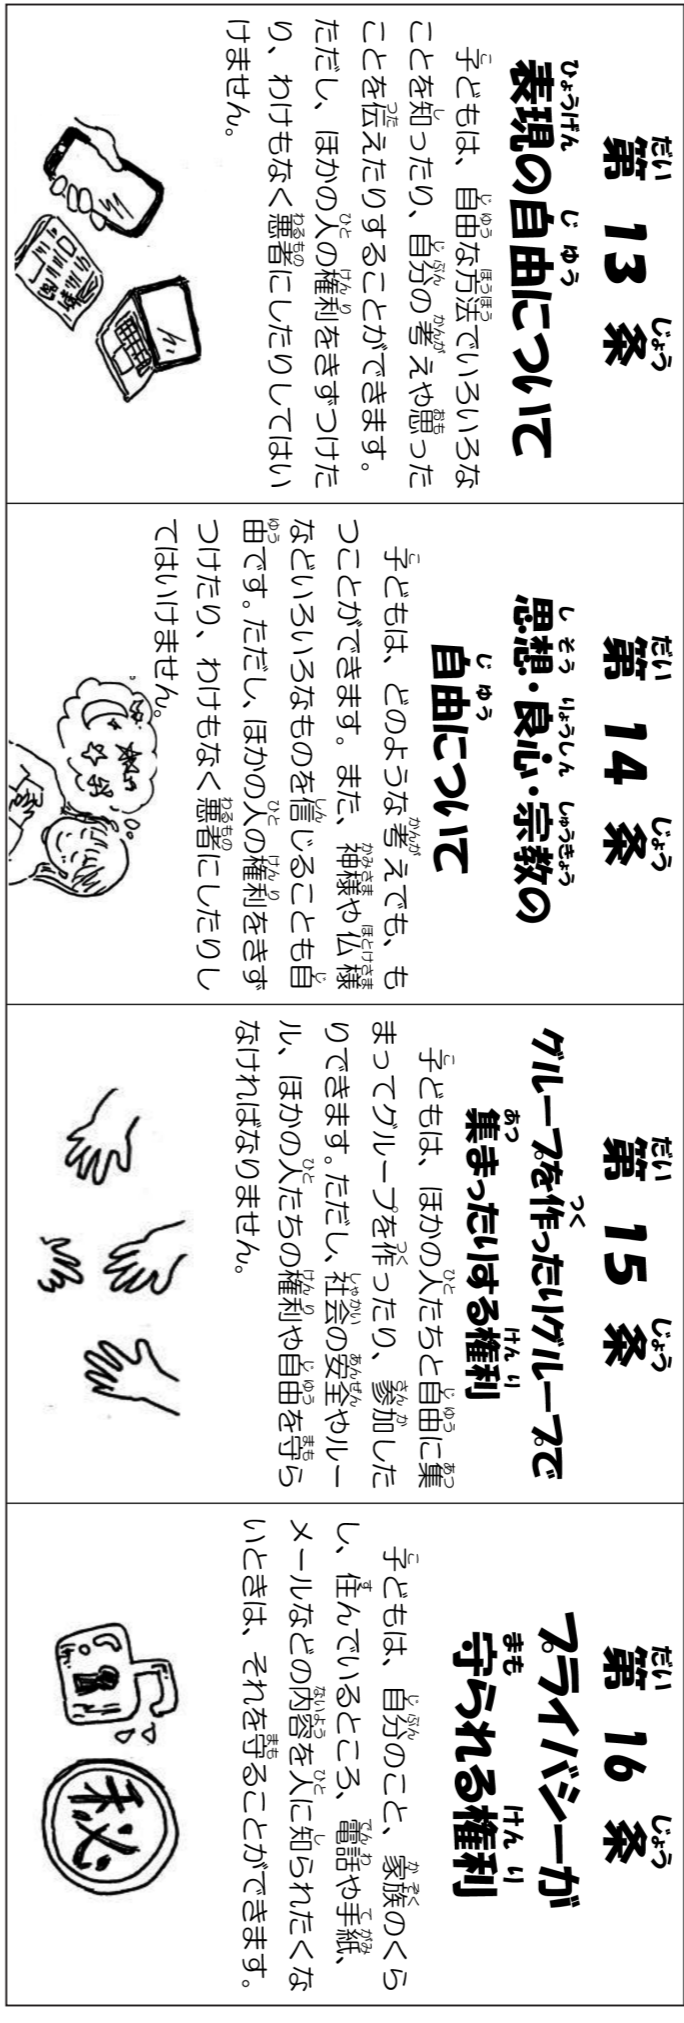 第13条
表現の自由について
子どもは、自由な方法でいろいろな
ことを知ったり、自分の考えや思った
ことを伝えたりすることができます。
ただし、ほかの人の権利をきずつけた
り、わけもなく悪者にしたりしてはい
けません。
第14条
思想・良心・宗教の
自由について
子どもは、どのような考えでも、も
つことができます。また、神様や仏様
などいろいろなものを信じることも自
由です。ただし、ほかの人の権利をきず
つけたり、わけもなく悪者にしたりし
てはいけません。
第15条
グループを作ったりグループで
集まったりする権利
子どもは、ほかの人たちと自由に集
まってグループを作ったり、参加した
りできます。ただし、社会の安全やルー
ル、ほかの人たちの権利や自由を守ら
なければなりません。
第16条
プライバシーが
守られる権利
子どもは、自分のこと、家族のくら
し、住んでいるところ、電話や手紙、
メールなどの内容を人に知られたくな
いときは、それを守ることができます。
秘